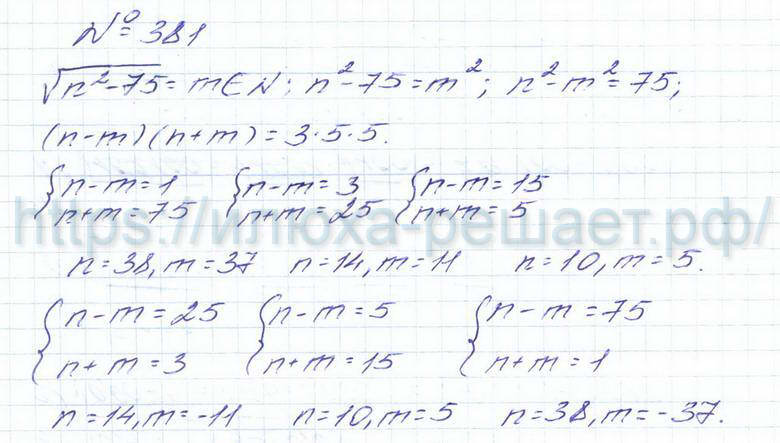 № 381
√n²-75 = m ∈ N; n²-75 = m²; n²-m² = 75;
(n-m)(n+m) = 3·5·5.
{n-m=1 {n-m=3 {n-m=15
n+m=75 n+m=25 n+m=5
https://илюха-решает.рф/
n=38, m=37 n=14, m=11 n=10, m=5.
{n-m=25 {n-m=5 {n-m=75
n+m=3 n+m=15 n+m=1
n=14, m=-11 n=10, m=5 n=38, m=-37.